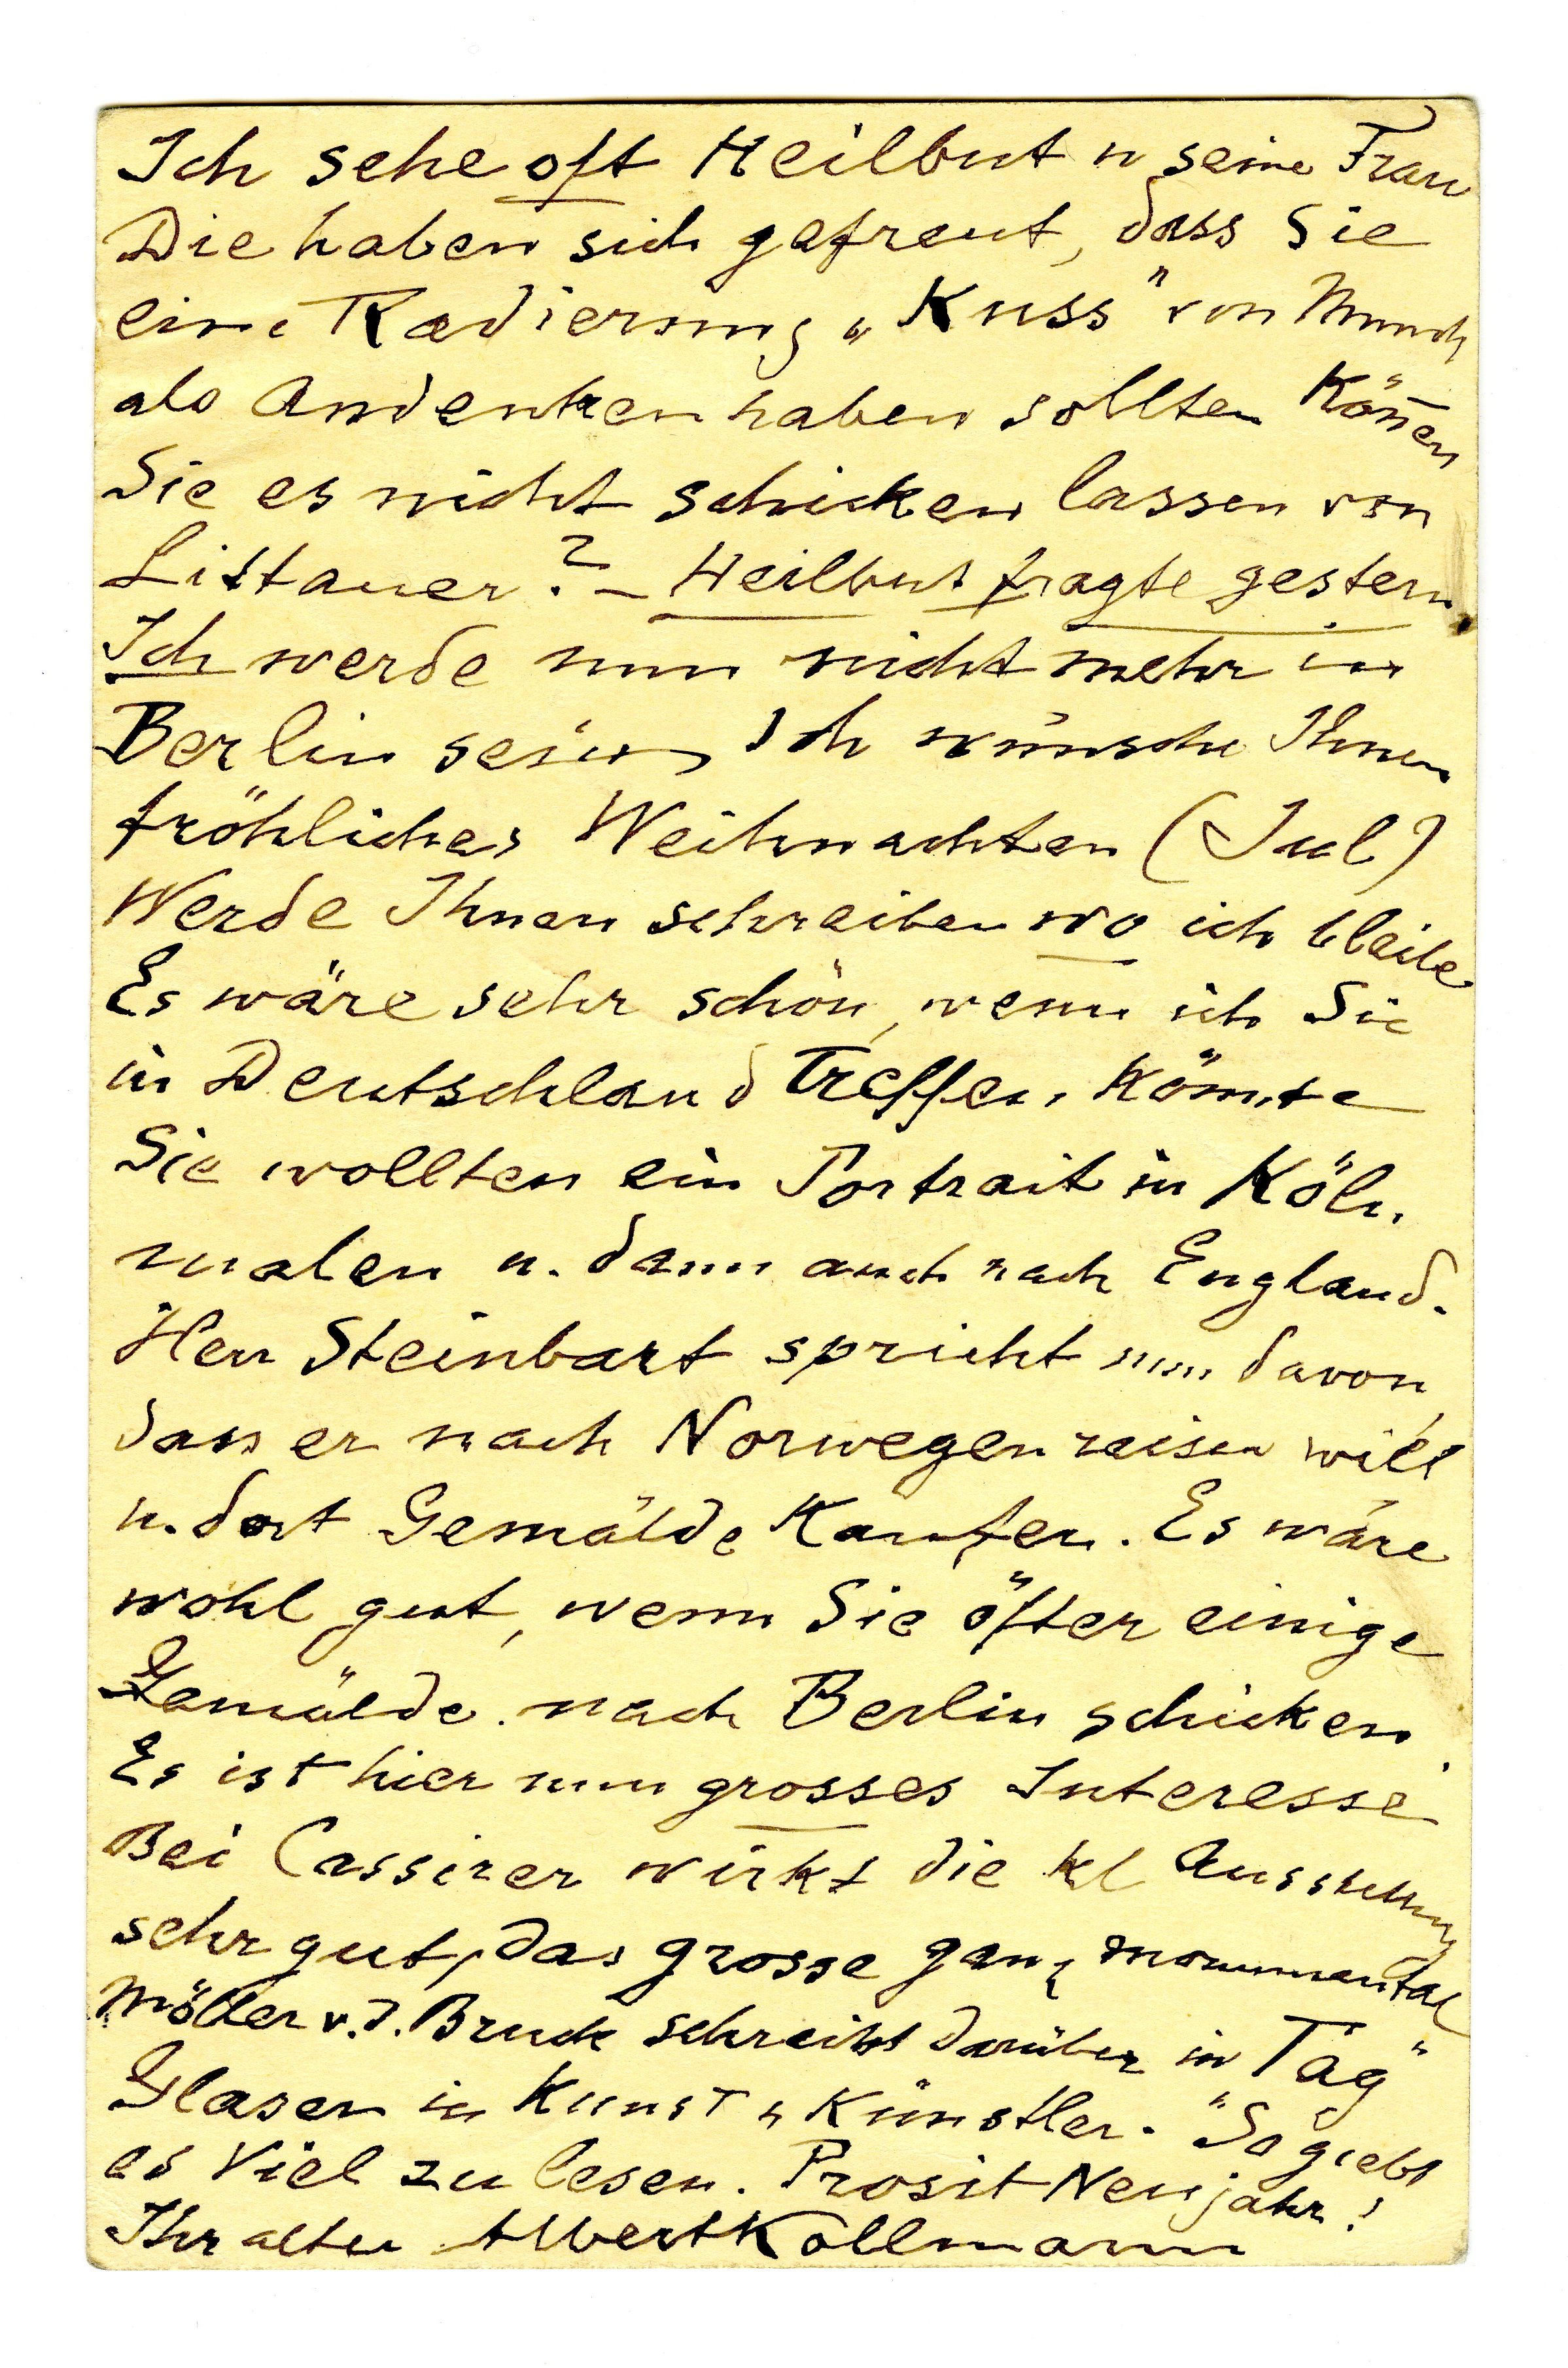 Ich sehe oft Heilbut u seine Frau
Die haben sich gefreut, dass Sie
eine Radierung „Kuss" von Munch
als Andenken haben sollten Können
Sie es nicht schicken lassen von
Littauer? – Heilbut fragte gestern
Ich werde nun nicht mehr in
Berlin sein, Ich wünsche Ihnen
fröhliches Weihnachten (Jul)
Werde Ihnen schreiben wo ich bleibe
Es wäre sehr schön, wenn ich Sie
in Deutschland treffen könnte
Sie wollten ein Portrait in Köln
malen u. dann auch nach England.
Herr Steinbart spricht nun davon,
dass er nach Norwegen reisen will
u. dort Gemälde kaufen. Es wäre
wohl gut, wenn Sie öfter einige
Gemälde nach Berlin schicken.
Es ist hier nun grosses Interesse
Bei Cassirer wirkt die kl Ausstellung
sehr gut, das grosse ganz monumental
Möller v.d. Bruck schreibt darüber in Tag"
Glaser in Kunst u Künstler. "So giebt
es Viel zu lesen. Prosit Neujahr!
Ihr alter Albert Kollmann